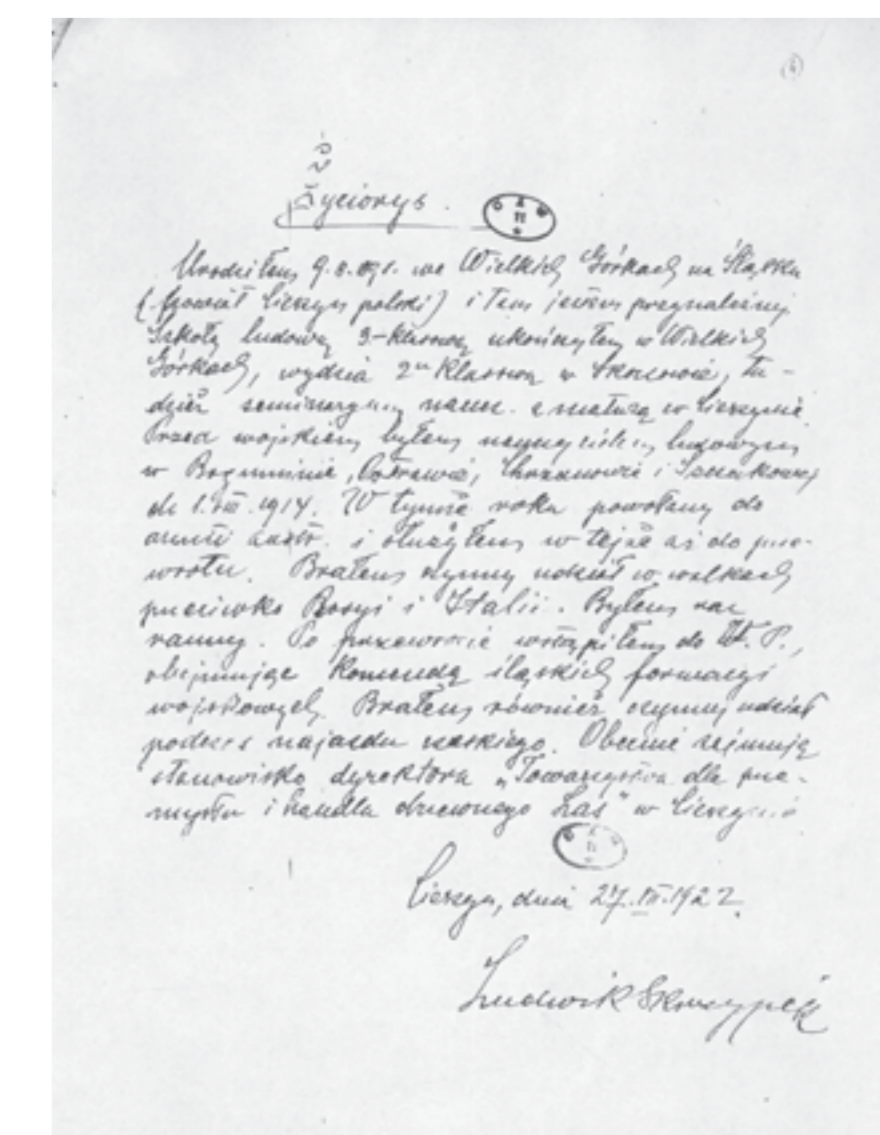 (4)
Życiorys.
Urodziłem 9.8.891. we Wielkich Górkach na Śląsku
(powiat Cieszyn polski) i tam jestem przynależny
Szkołę ludową 3-klasową ukończyłem w Wielkich
Górkach, wydział 2u klasowa w Skoczowie, tu-
dzież seminaryum naucz. z maturą w Cieszynie.
Przed wojskiem byłem nauczycielem ludowym
w Boguminie, Ostrawie, Chrzanowie i Szczakowej
do 1.VIII.1914. W tymże roku powołany do
armii austr. i służyłem w tejże aż do prze-
wrotu. Brałem czynny udział w walkach
przeciwko Rosyi i Italii. Byłem raz
ranny. Po przewrocie wstąpiłem do W. P.,
obejmując komendę śląskich formacyi
wojskowych. Brałem również czynny udział
podczas najazdu czeskiego. Obecnie zajmuję
stanowisko dyrektora „Towarzystwa dla prze-
mysłu i handlu drzewnego Las" w Cieszynie
Cieszyn, dnia 27. 1922.
Ludwik Skrzypek